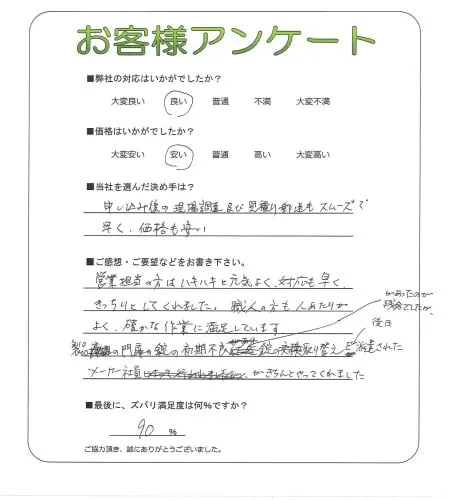 お客様アンケート
■弊社の対応はいかがでしたか?
大変良い 良い 普通 不満 大変不満
■価格はいかがでしたか?
大変安い 安い 普通 高い 大変高い
■当社を選んだ決め手は?
申し込み後の現場調査及び見積り郵送もスムーズで
早く、価格も安い
■ご感想・ご要望などをお書き下さい。
営業担当の方はハキハキと元気よく、対応も早く、
きっちりとしてくれました。職人の方も人あたりが
よく、確かな作業に満足しています
があったのが
残念でしたが、
後日
製品の門扉の錠の初期不良 錠の取り替え 派遣された
メーカー社員がきちんとやってくれました
■最後に、ズバリ満足度は何%ですか?
90 %
ご協力頂き、誠にありがとうございました。